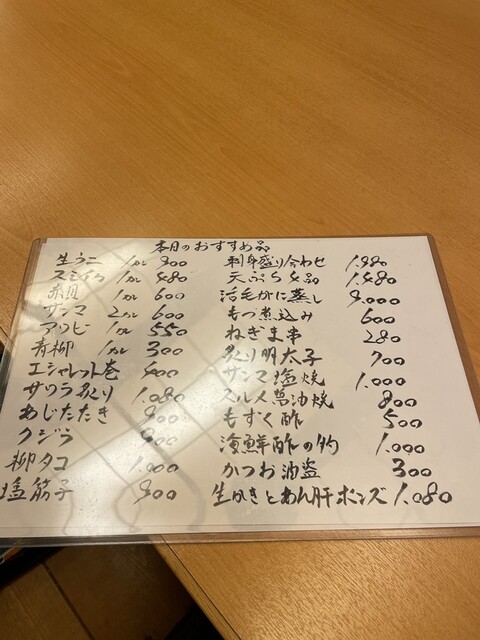 本日のおすすめ品
生ウニ 1カレ 900
スミイカ 1カレ 480
赤貝 1カレ 600
サンマ 2カレ 600
アワビ 1カレ 550
青柳 1カレ 300
エシャレット巻 400
サワラ炙り 1.080
あじたたき 900
クジラ 900
柳タコ 1.000
塩筋子 900
刺身盛り合わせ 1.980
天ぷら4品 1.480
活毛がに蒸し 9.000
もつ煮込み 600
ねぎま串 280
炙り明太子 700
サンマ塩焼 1.000
スルメ醤油焼 800
もずく酢 500
海鮮酢の物 1.000
かつお油盗 300
生かきとあん肝ポンズ 1.080